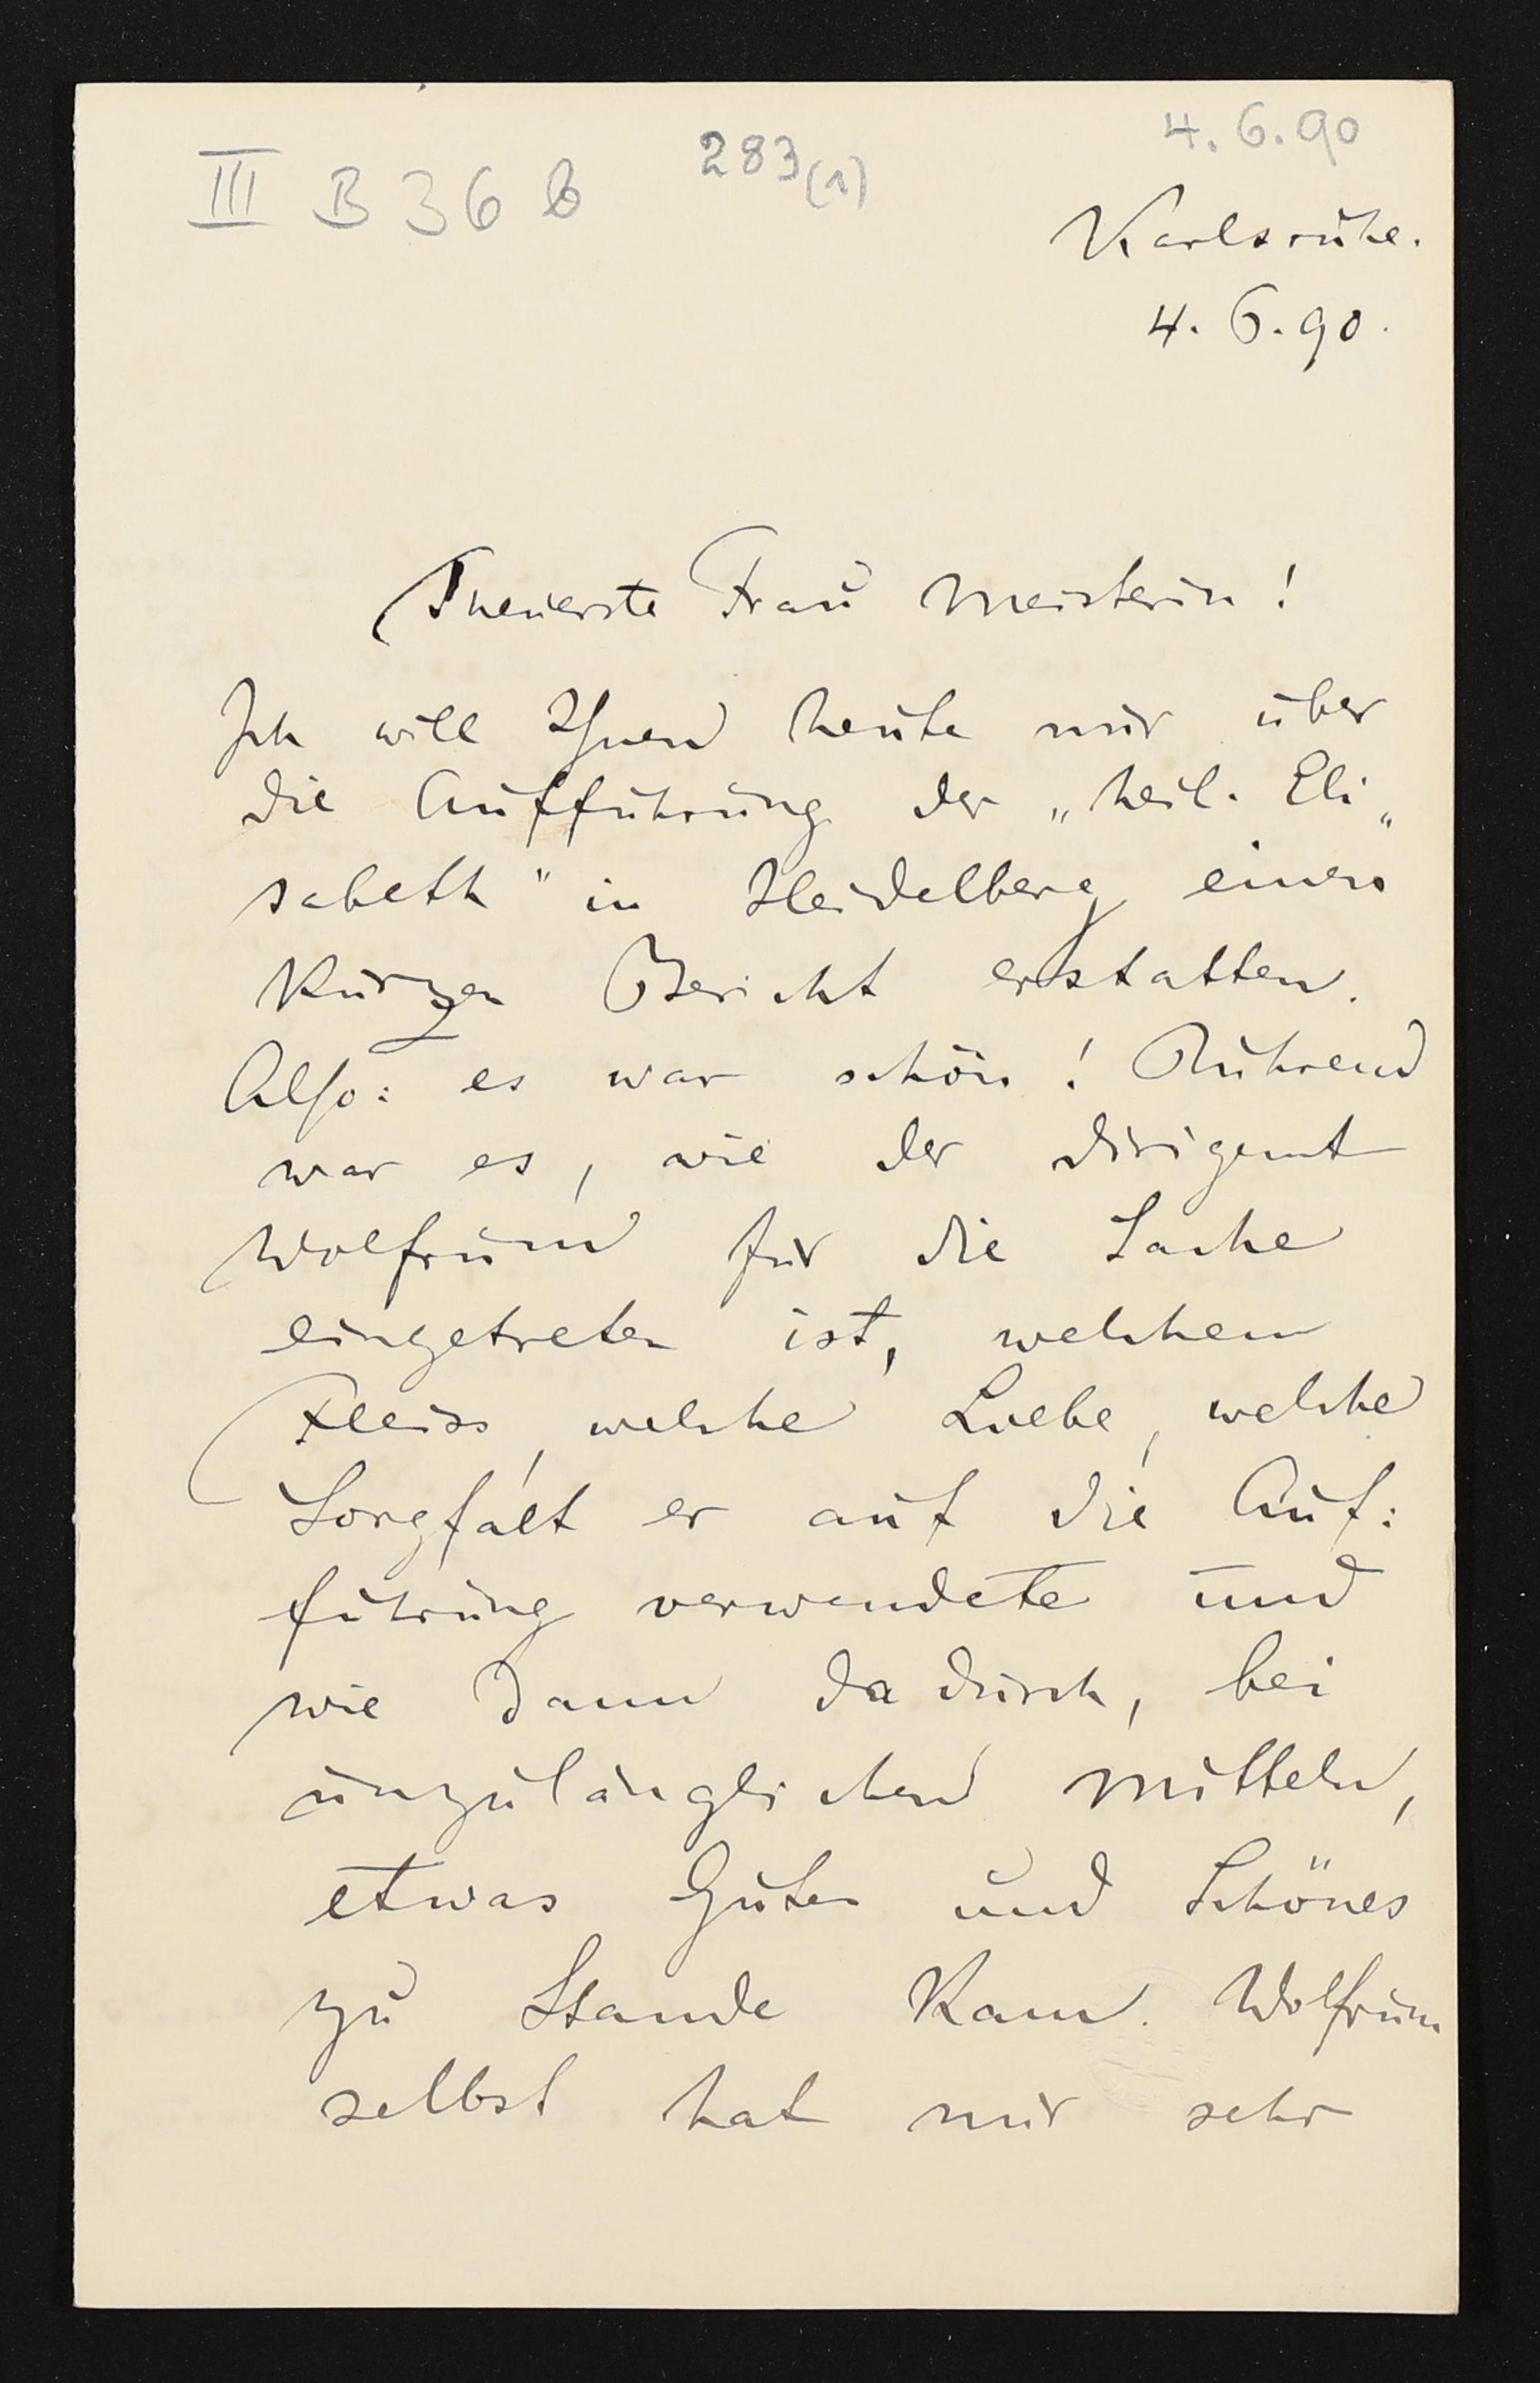 4. 6. 90
III B 36 b 283(1)
Karlsruhe.
4. 6. 90.
Theuerste Frau Meisterin!
Ich will Ihnen heute nur über
die Aufführung der „heil. Eli„
sabeth" in Heidelberg einen
kurzen Bericht erstatten.
Also: es war schön! Rührend
war es, wie der Dirigent
Wolfrum für die Sache
eingetreten ist, welchen
Fleiss, welche Liebe, welche
Sorgfalt er auf die Auf:
führung verwendete und
wie dann dadurch, bei
unzulänglichen Mitteln,
etwas Gutes und Schönes
zu Stande kam. Wolfrum
selbst hat mir sehr